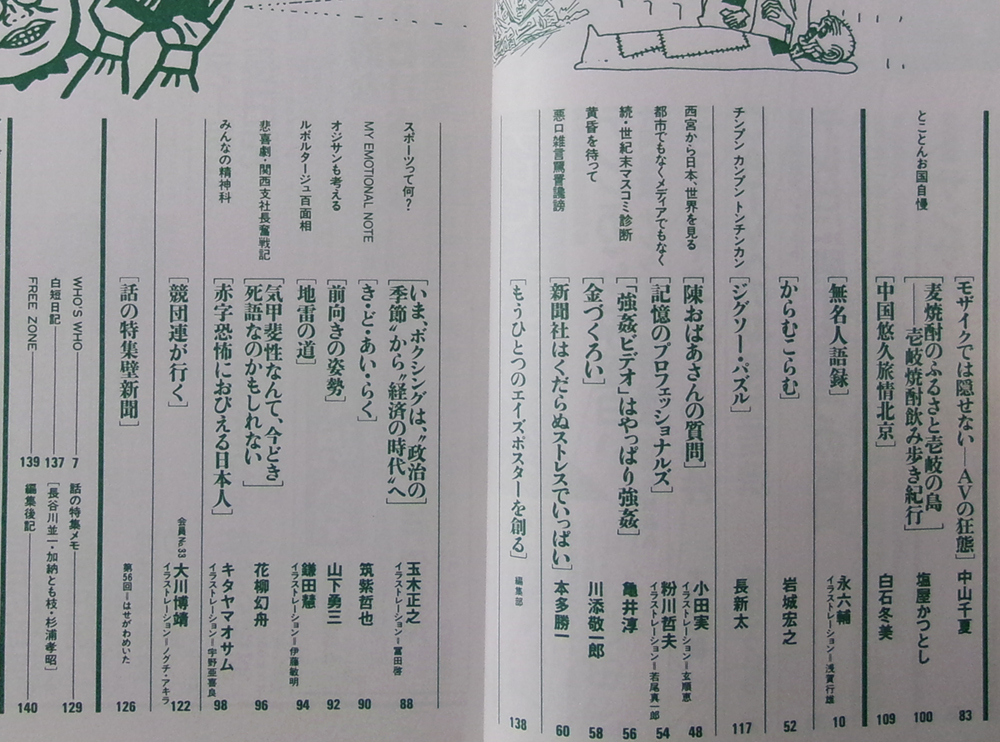 モザイクでは隠せない——AVの狂態 中山千夏 83
とことんお国自慢 麦焼酎のふるさと壱岐の島
——壱岐焼酎飲み歩き紀行 塩屋かつとし 100
中国悠久旅情北京 白石冬美 109
無名人語録 永六輔 イラストレーション=浅賀行雄 10
からむこらむ 岩城宏之 52
チンプン カンプン トンチンカン ジグソー・パズル 長新太 117
西宮から日本、世界を見る 陳おばあさんの質問 小田実 イラストレーション=玄順恵 48
都市でもなくメディアでもなく 記憶のプロフェッショナルズ 粉川哲夫 イラストレーション=若尾真一郎 54
続・世紀末マスコミ診断 「強姦ビデオ」はやっぱり強姦 亀井淳 56
黄昏を待って 金づくろい 川添敬一郎 58
悪口雑言罵詈讒謗 新聞社はくだらぬストレスでいっぱい 本多勝一 60
もうひとつのエイズポスターを創る 編集部 138
スポーツって何? いま、ボクシングは、“政治の
季節”から“経済の時代”へ 玉木正之 イラストレーション=富田啓 88
MY EMOTIONAL NOTE き・ど・あい・らく 筑紫哲也 90
オジサンも考える 前向きの姿勢 山下勇三 92
ルポルタージュ百面相 地雷の道 鎌田慧 イラストレーション=伊藤敏明 94
悲喜劇・関西支社長奮戦記 気甲斐性なんて、今どき
死語なのかもしれない 花柳幻舟 96
みんなの精神科 赤字恐怖におびえる日本人 キタヤマオサム イラストレーション=宇野亜喜良 98
競団連が行く 会員No.33 大川博靖 イラストレーション=ノグチ・アキラ 122
話の特集壁新聞 第56回=はせがわめいた 126
WHO'S WHO 7
白短日記 137
FREE ZONE 139
話の特集メモ 129
[長谷川並一・加納とも枝・杉浦孝昭]
編集後記 140